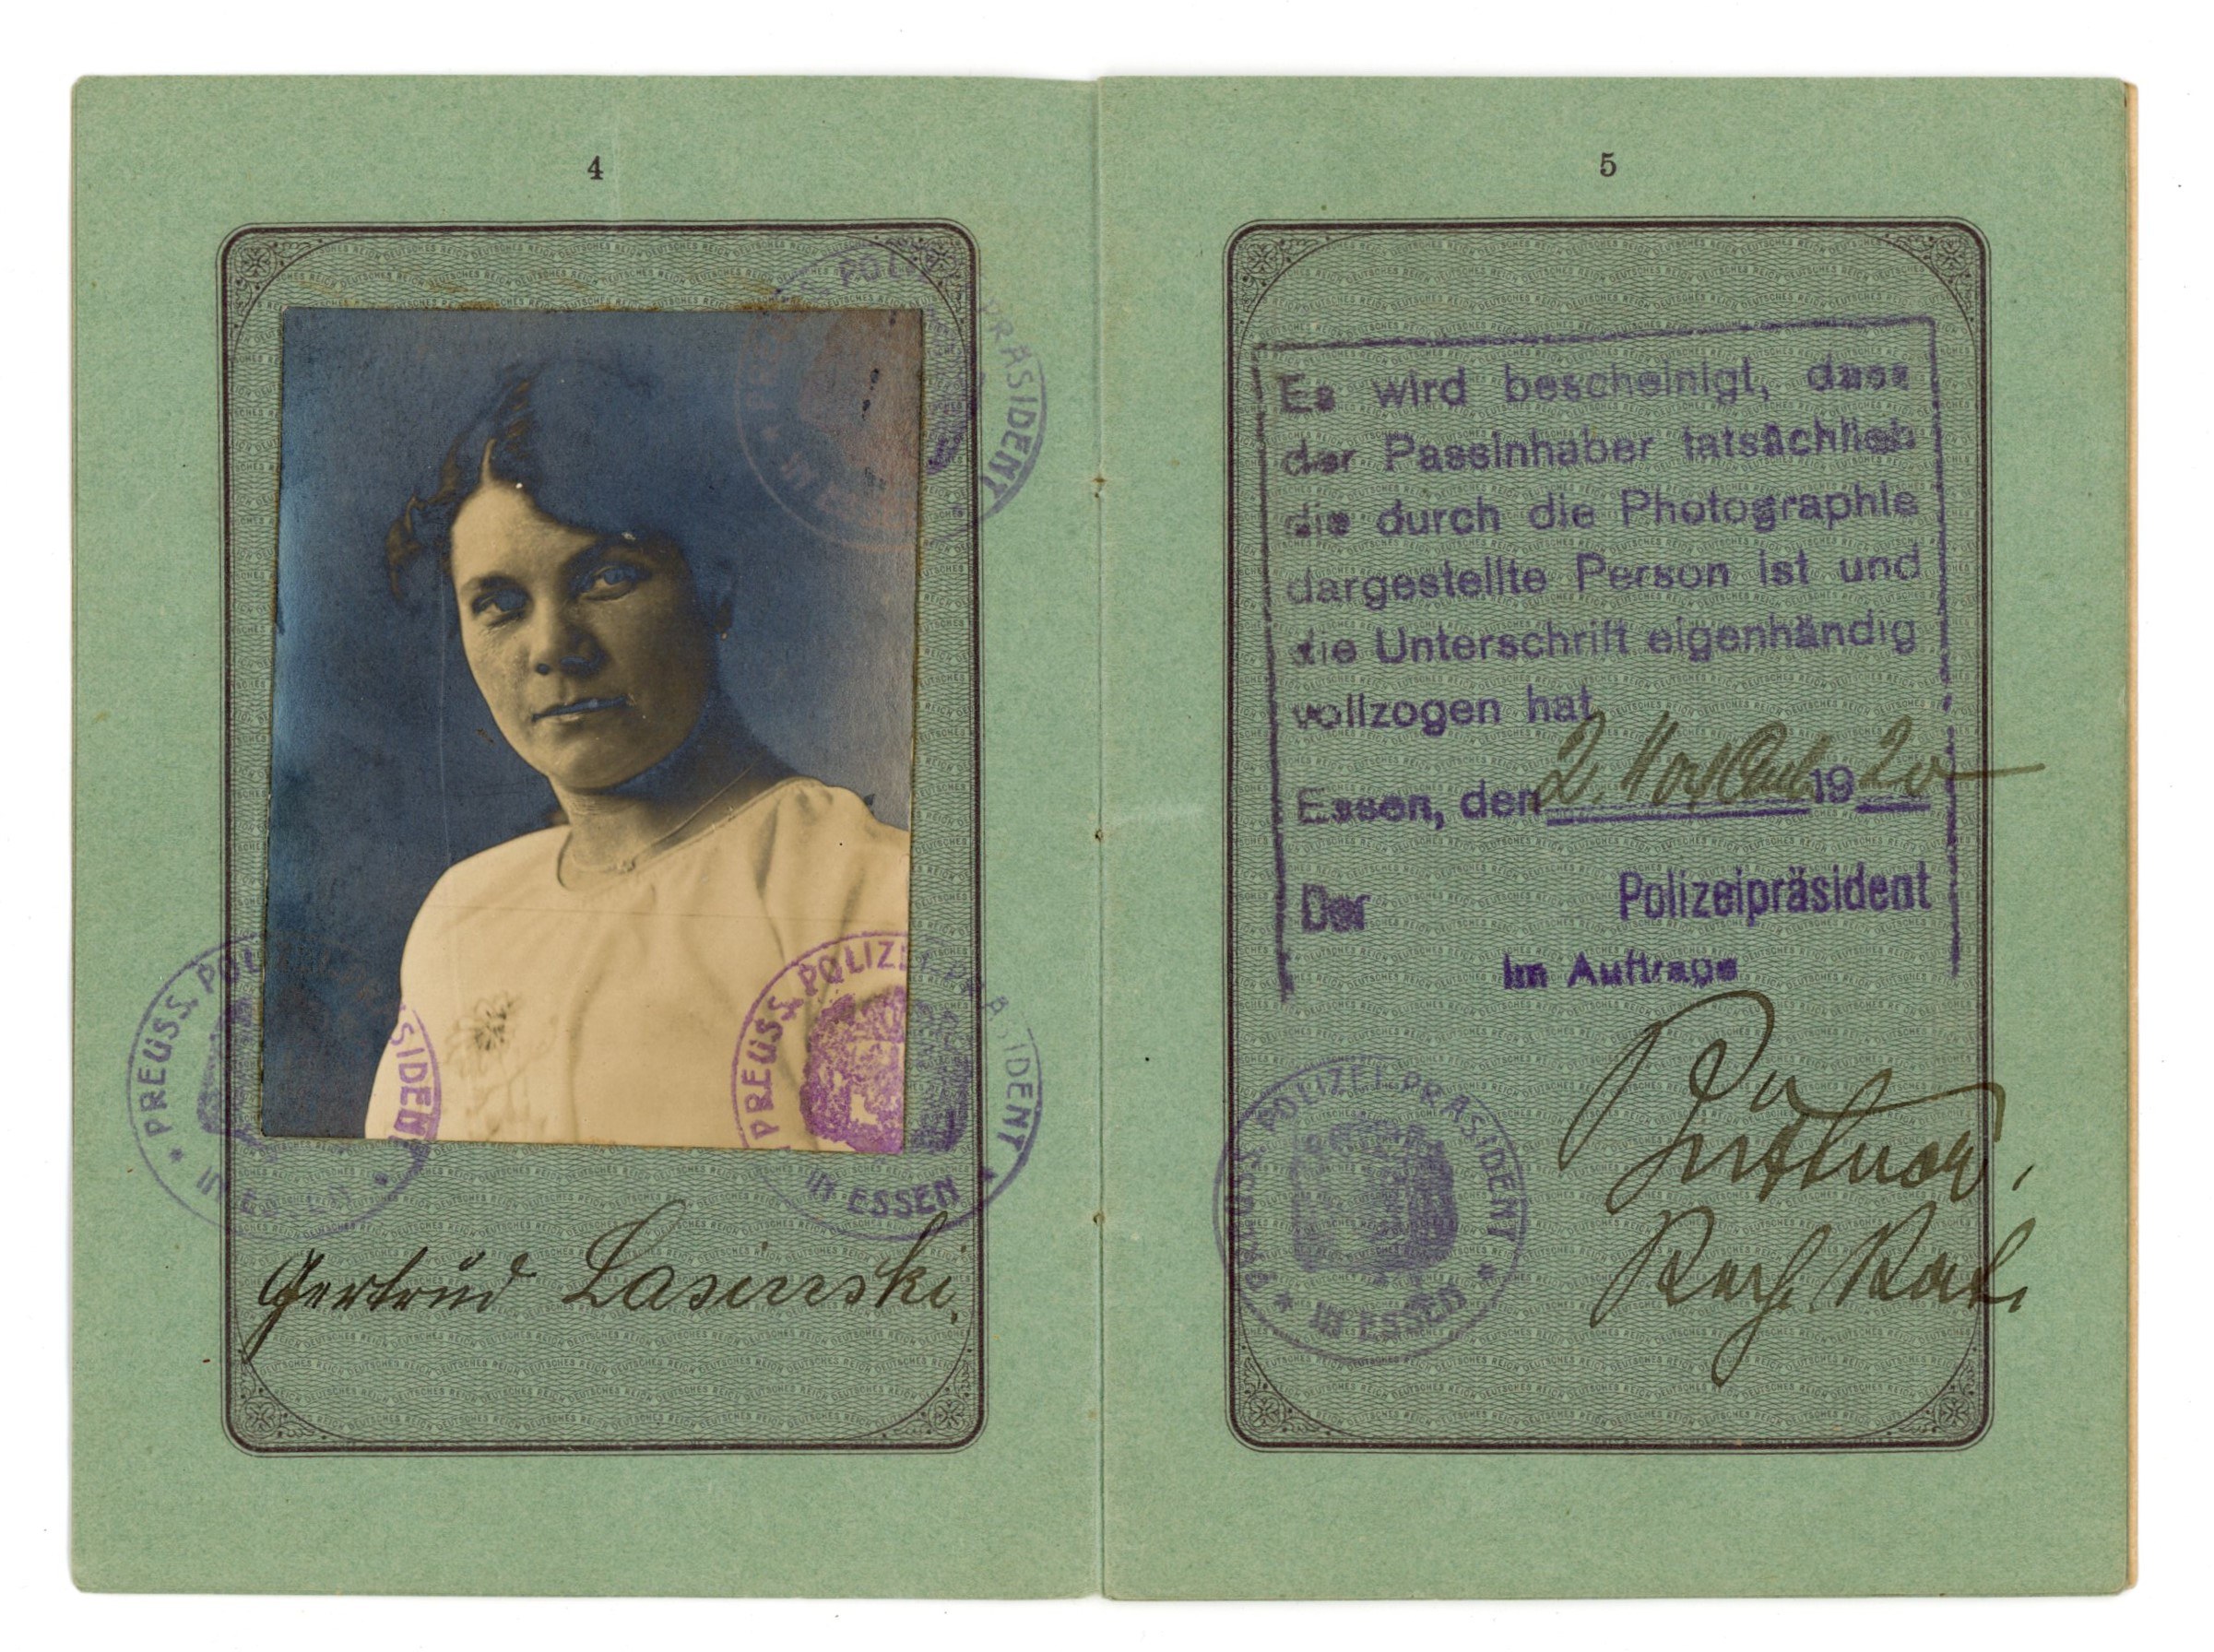 4
PREUSS. POLIZEI-PRÄSIDENT
IN ESSEN
PREUSS. POLIZEI-PRÄSIDENT
IN ESSEN
PREUSS. POLIZEI-PRÄSIDENT
IN ESSEN
Gertrud Lasinski.
5
Es wird bescheinigt, dass
der Passinhaber tatsächlich
die durch die Photographie
dargestellte Person ist und
die Unterschrift eigenhändig
vollzogen hat
Essen, den 2. 1920
Der Polizeipräsident
Im Auftrage
PREUSS. POLIZEI-PRÄSIDENT
IN ESSEN